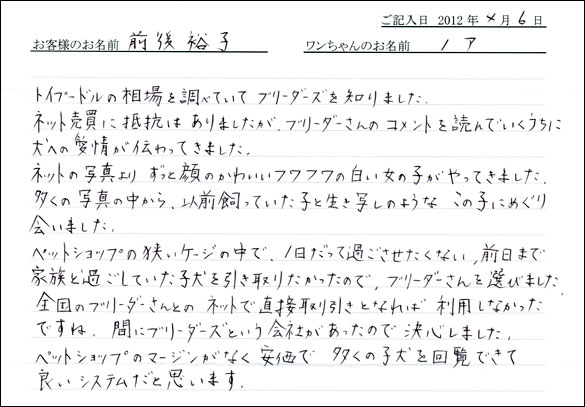 ご記入日 2012 年 4 月 6 日
お客様のお名前 前後 裕子 ワンちゃんのお名前 ノア
トイプードルの相場を調べていて ブリーダーズを知りました.
ネット売買に抵抗はありましたが、ブリーダーさんのコメントを読んでいくうちに
犬への愛情が伝わってきました.
ネットの写真より ずっと顔のかわいいフワフワの白い女の子がやってきました.
多くの写真の中から、以前飼っていた子と生き写しのような この子にめぐり
会いました.
ペットショップの狭いケージの中で、1日だって過ごさせたくない,前日まで
家族と過ごしていた子犬を引き取りたかったので,ブリーダーさんを選びました.
全国のブリーダーさんとの ネットで直接取り引きとなれば 利用しなかった
ですね. 間にブリーダーズという会社があったので 決心しました.
ペットショップのマージンがなく 安価で 多くの子犬を回覧できて
良いシステムだと思います.